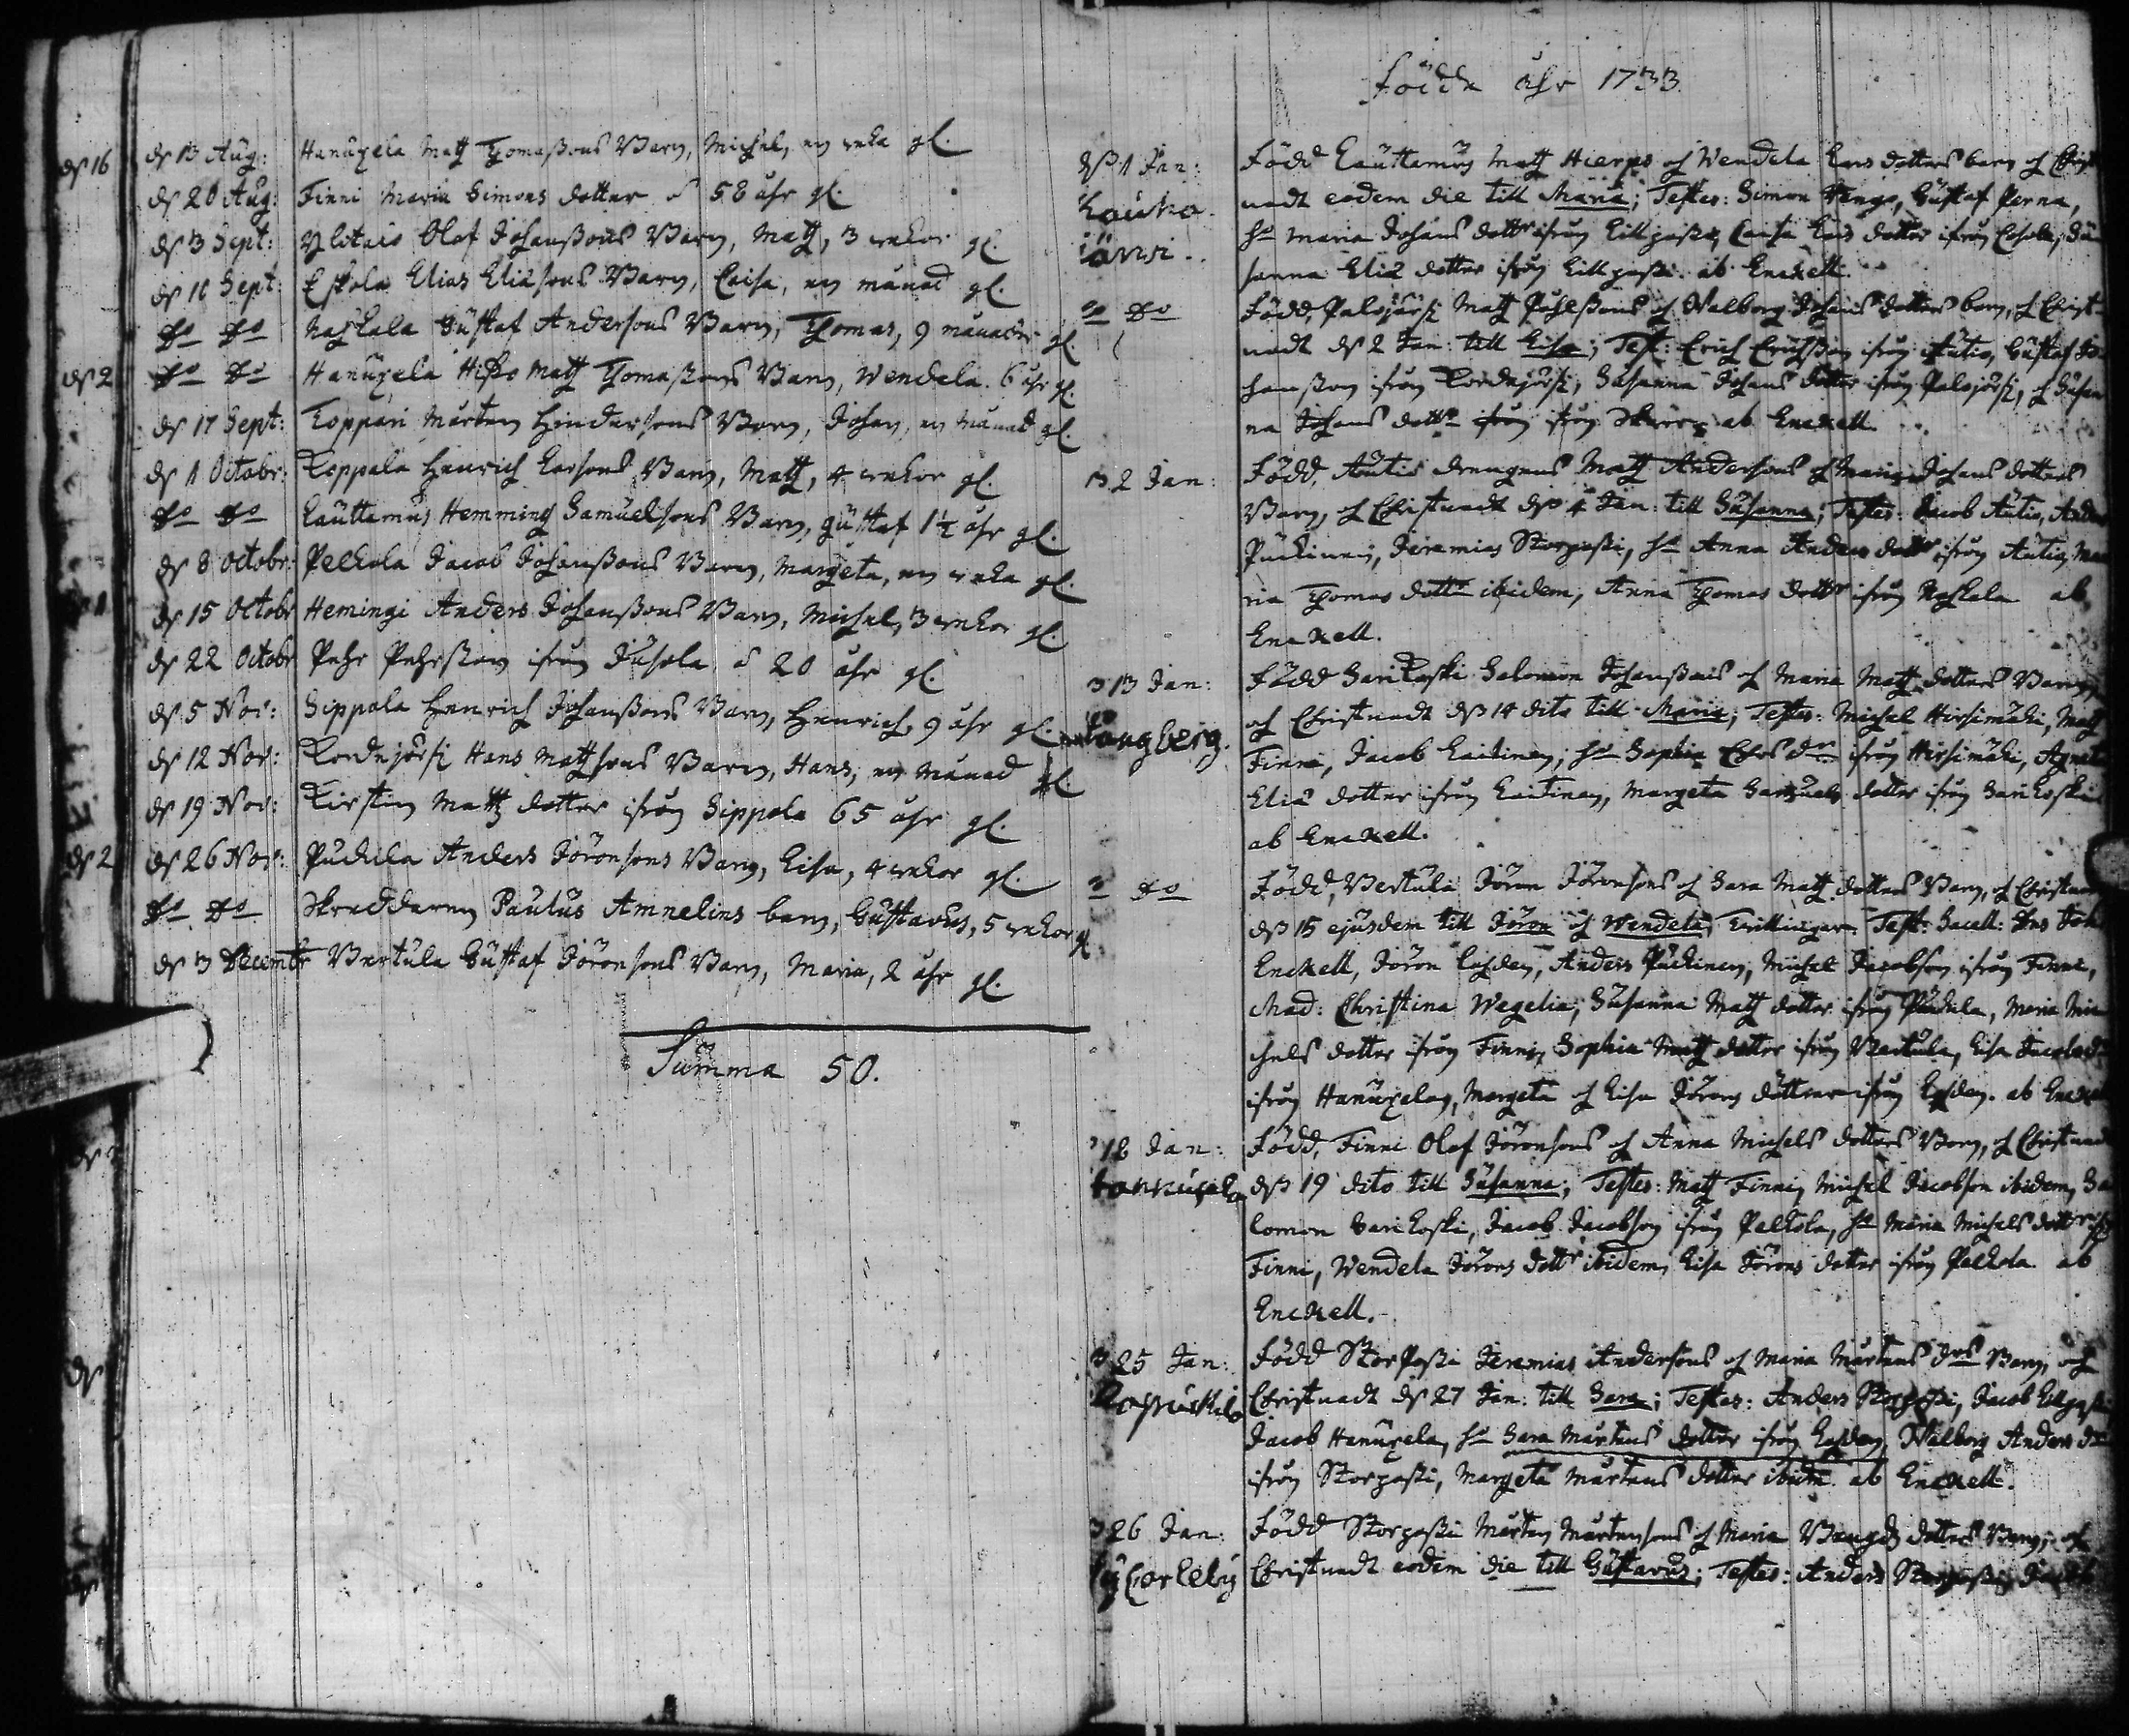 ds 16
ds 13 Aug: Hanuxela Matz Thomassons Barn, Michel, en weka gl.
ds 20 Aug: Finni Maria Simons dotter 58 åhr gl.
ds 3 Sept: Ylitalo Olof Johanssons Barn, Matz, 3 wekor gl.
ds 10 Sept: Eskola Elias Eliæsons Barn, Caisa, en månad gl.
do do Naskala Gustaf Andersons Barn, Thomas, 9 månader gl.
ds 2
do do Hanuxela Hisko Matz Thomassons Barn, Wendela 6 åhr gl.
ds 17 Sept: Toppari Mårten Hindersons Barn, Johan, en månad gl.
ds 1 Octobr: Koppala Henrich Larsons Barn, Matz, 4 wekor gl.
do do Lauttamus Hemming Samuelsons Barn, Gustaf 1½ åhr gl.
ds 8 Octobr: Pelkola Jacob Johanssons Barn, Margeta, en weka gl.
ds 15 Octobr Hemingi Anders Johanssons Barn, Michel, 3 wekor gl.
ds 22 Octobr Pehr Pehrsson ifrån Jusola 20 åhr gl.
ds 5 Nov: Sippola Henrich Johanssons Barn, Henrich, 9 åhr gl.
ds 12 Nov: Kordnjärfi Hans Matzsons Barn, Hans, en månad gl.
ds 19 Nov: Kirstin Matz dotter ifrån Sippola 65 åhr gl.
ds 2
ds 26 Nov: Puckila Anders Jöransons Barn, Lisa, 4 wekor gl.
do do Skreddaren Paulus Amnelius barn, Gustavus, 5 wekor gl
ds 3 Decembr Vertula Gustaf Jöransons Barn, Maria, 2 åhr gl.
Summa 50.
Födde åhr 1733.
ds 1 Jan: Född Lauttamus Matz Hierps of Wendela Lars dotters barn of Christ
Kauha nadt eodem die till Maria; Testes: Simon Rengo, Gustaf Perna,
järvi ho Maria Johans dottr ifrån Lillpasti, Caisa Lars dotter ifrån Cosola, Su
sanna Eliæ dotter ifrån Lillpasti. ab Enckell.
do Född, Palojärfi Matz Påhlssons of Walborg Johans dotters barn, of Christ
nadt ds 2 Jan: till Lisa; Test: Erich Erichsson ifrån Autio, Gustaf Jo
hansson ifrån Kordnjärfi, Susanna Johans dotter ifrån Palojärfi, of Susan
na Johans dottr ifrån ab Enckell.
2 Jan: Född, Autio drengens Matz Andersons of Maria Johans dotters
Barn, of Christnadt ds 4 Jan: till Susanna; Testes: Jacob Autio, Anders
Puckinen, Jeremias Storpasti, ho Anna Anders dottr ifrån Autio, Ma
ria Thomas dottr ibidem, Anna Thomas dottr ifrån Naskala ab
Enckell.
13 Jan: Född Sarikoski Salomon Johanssons of Maria Matz dotters Barn,
Långberg. of Christnadt ds 14 dito till Maria; Testes: Michel Hirsimäki, Matz
Finni, Jacob Laitinen; ho Sophia ifrån Hirsimäki, Agneta
Eliæ dotter ifrån Laitinen, Margeta Samuels dotter ifrån Sarikoski
ab Enckell.
do Född, Vertula Jöran Jöransons of Sara Matz dotters Barn, of Christnadt
ds 15 ejusdem till Jöran of Wendela; Twillingar. Test: Sacell: Dns Joh
Enckell, Jöran Lohden, Anders Puckinen, Michel Jacobson ifrån Finni,
Mad: Christina Wegelia, Susanna Matz dotter ifrån Puckila, Maria Mi
chels dotter ifrån Finni, Sophia Matz dotter ifrån Vertula, Lisa Jacobsd
ifrån Hanuxela, Margeta of Lisa Jörans döttrar ifrån Lohden. ab Enckell
18 Jan: Född, Finni Olof Jöransons of Anna Michels dotters Barn, of Christnadt
ds 19 dito till Susanna; Testes: Matz Finni, Michel Jacobson ibidem, Sa
lomon Sarikoski, Jacob Jacobson ifrån Pelkola, ho Maria Michels dottr ifrån
Finni, Wendela Jörans dottr ibidem, Lisa Jörans dotter ifrån Pelkola. ab
Enckell.
25 Jan: Född Storpasti Jeremias Andersons of Maria Mårtens drs Barn, of
Christnadt ds 27 Jan: till Sara; Testes: Anders Storpasti, Jacob Lillpasti
Jacob Hanuxela, ho Sara Mårtens dotter ifrån Lohden, Walborg Anders dr
ifrån Storpasti, Margeta Mårtens dotter ibidm. ab Enckell.
26 Jan: Född Storpasti Mårten Mårtensons of Maria Bengts dotters Barn, of
Christnadt eodem die till Gustavus; Testes: Anders Storpasti, Jacob